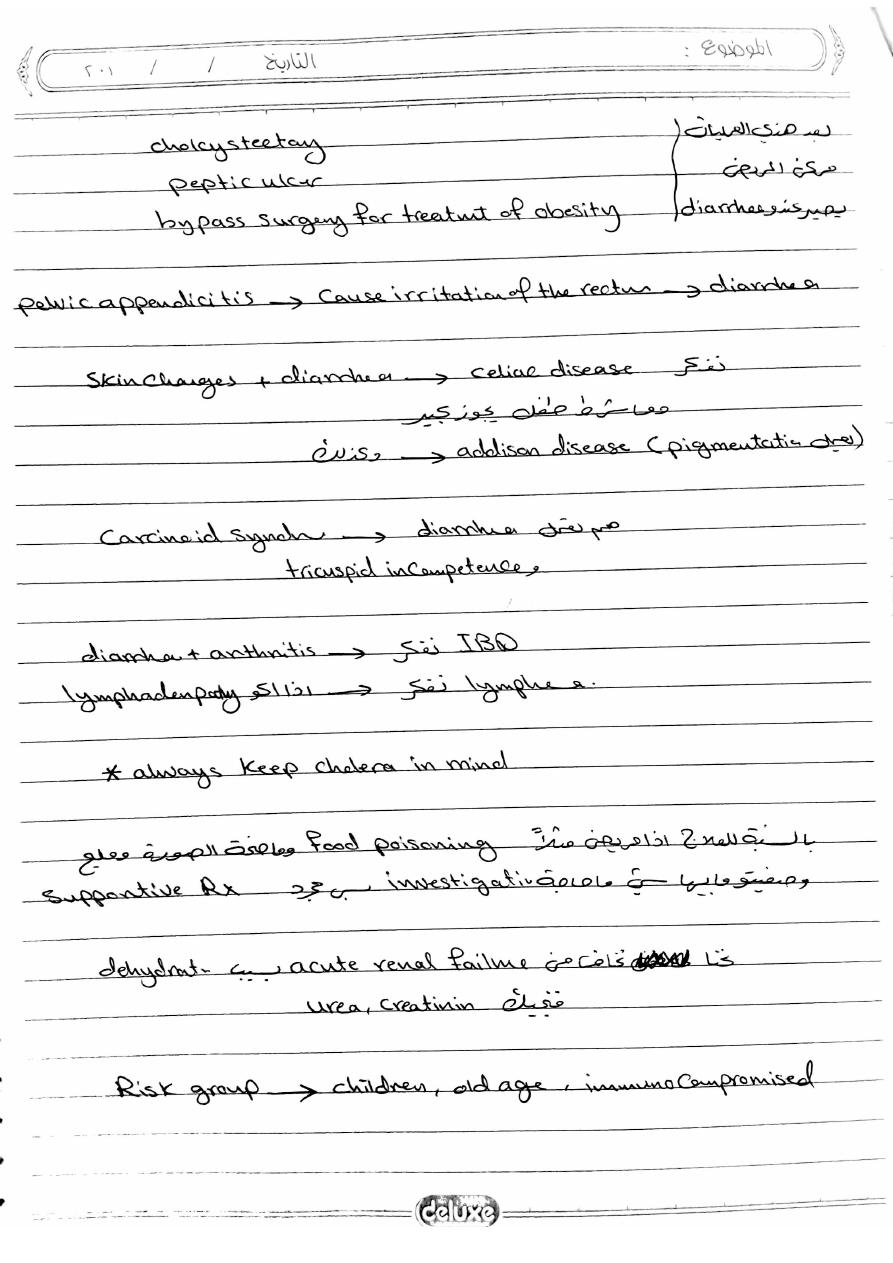 الموضوع :
التاريخ / / ٢٠١
cholcysteetomy بعد هذي العمليات
peptic ulcur ممكن المريض
bypass surgery for treatmt of obesity يصير عنده diarrhea
pelvic appendicitis → Cause irritation of the rectum → diarrhea
Skin changes + diarrhea → celiac disease نفكر
مو شرط طفل يجوز كبير
وكذلك → addison disease (pigmentatio يعمل)
Carcinoid syndr → diarrhea هم تعمل
tricuspid incompetence و
diarrhea + arthritis → نفكر IBD
lymphadenpathy اذا اكو → نفكر lymphoma.
* always keep cholera in mind
بالنسبة للعلاج اذا مريض مثلاً food poisoning وماخذة الصورة
وصفيتو مابيها شي ماحاجة investigativ بس مجرد supportive Rx
نخاف من acute renal failure بسبب dehydrat-
urea, creatinin
Risk group → children, old age, immunocompromised
deluxe